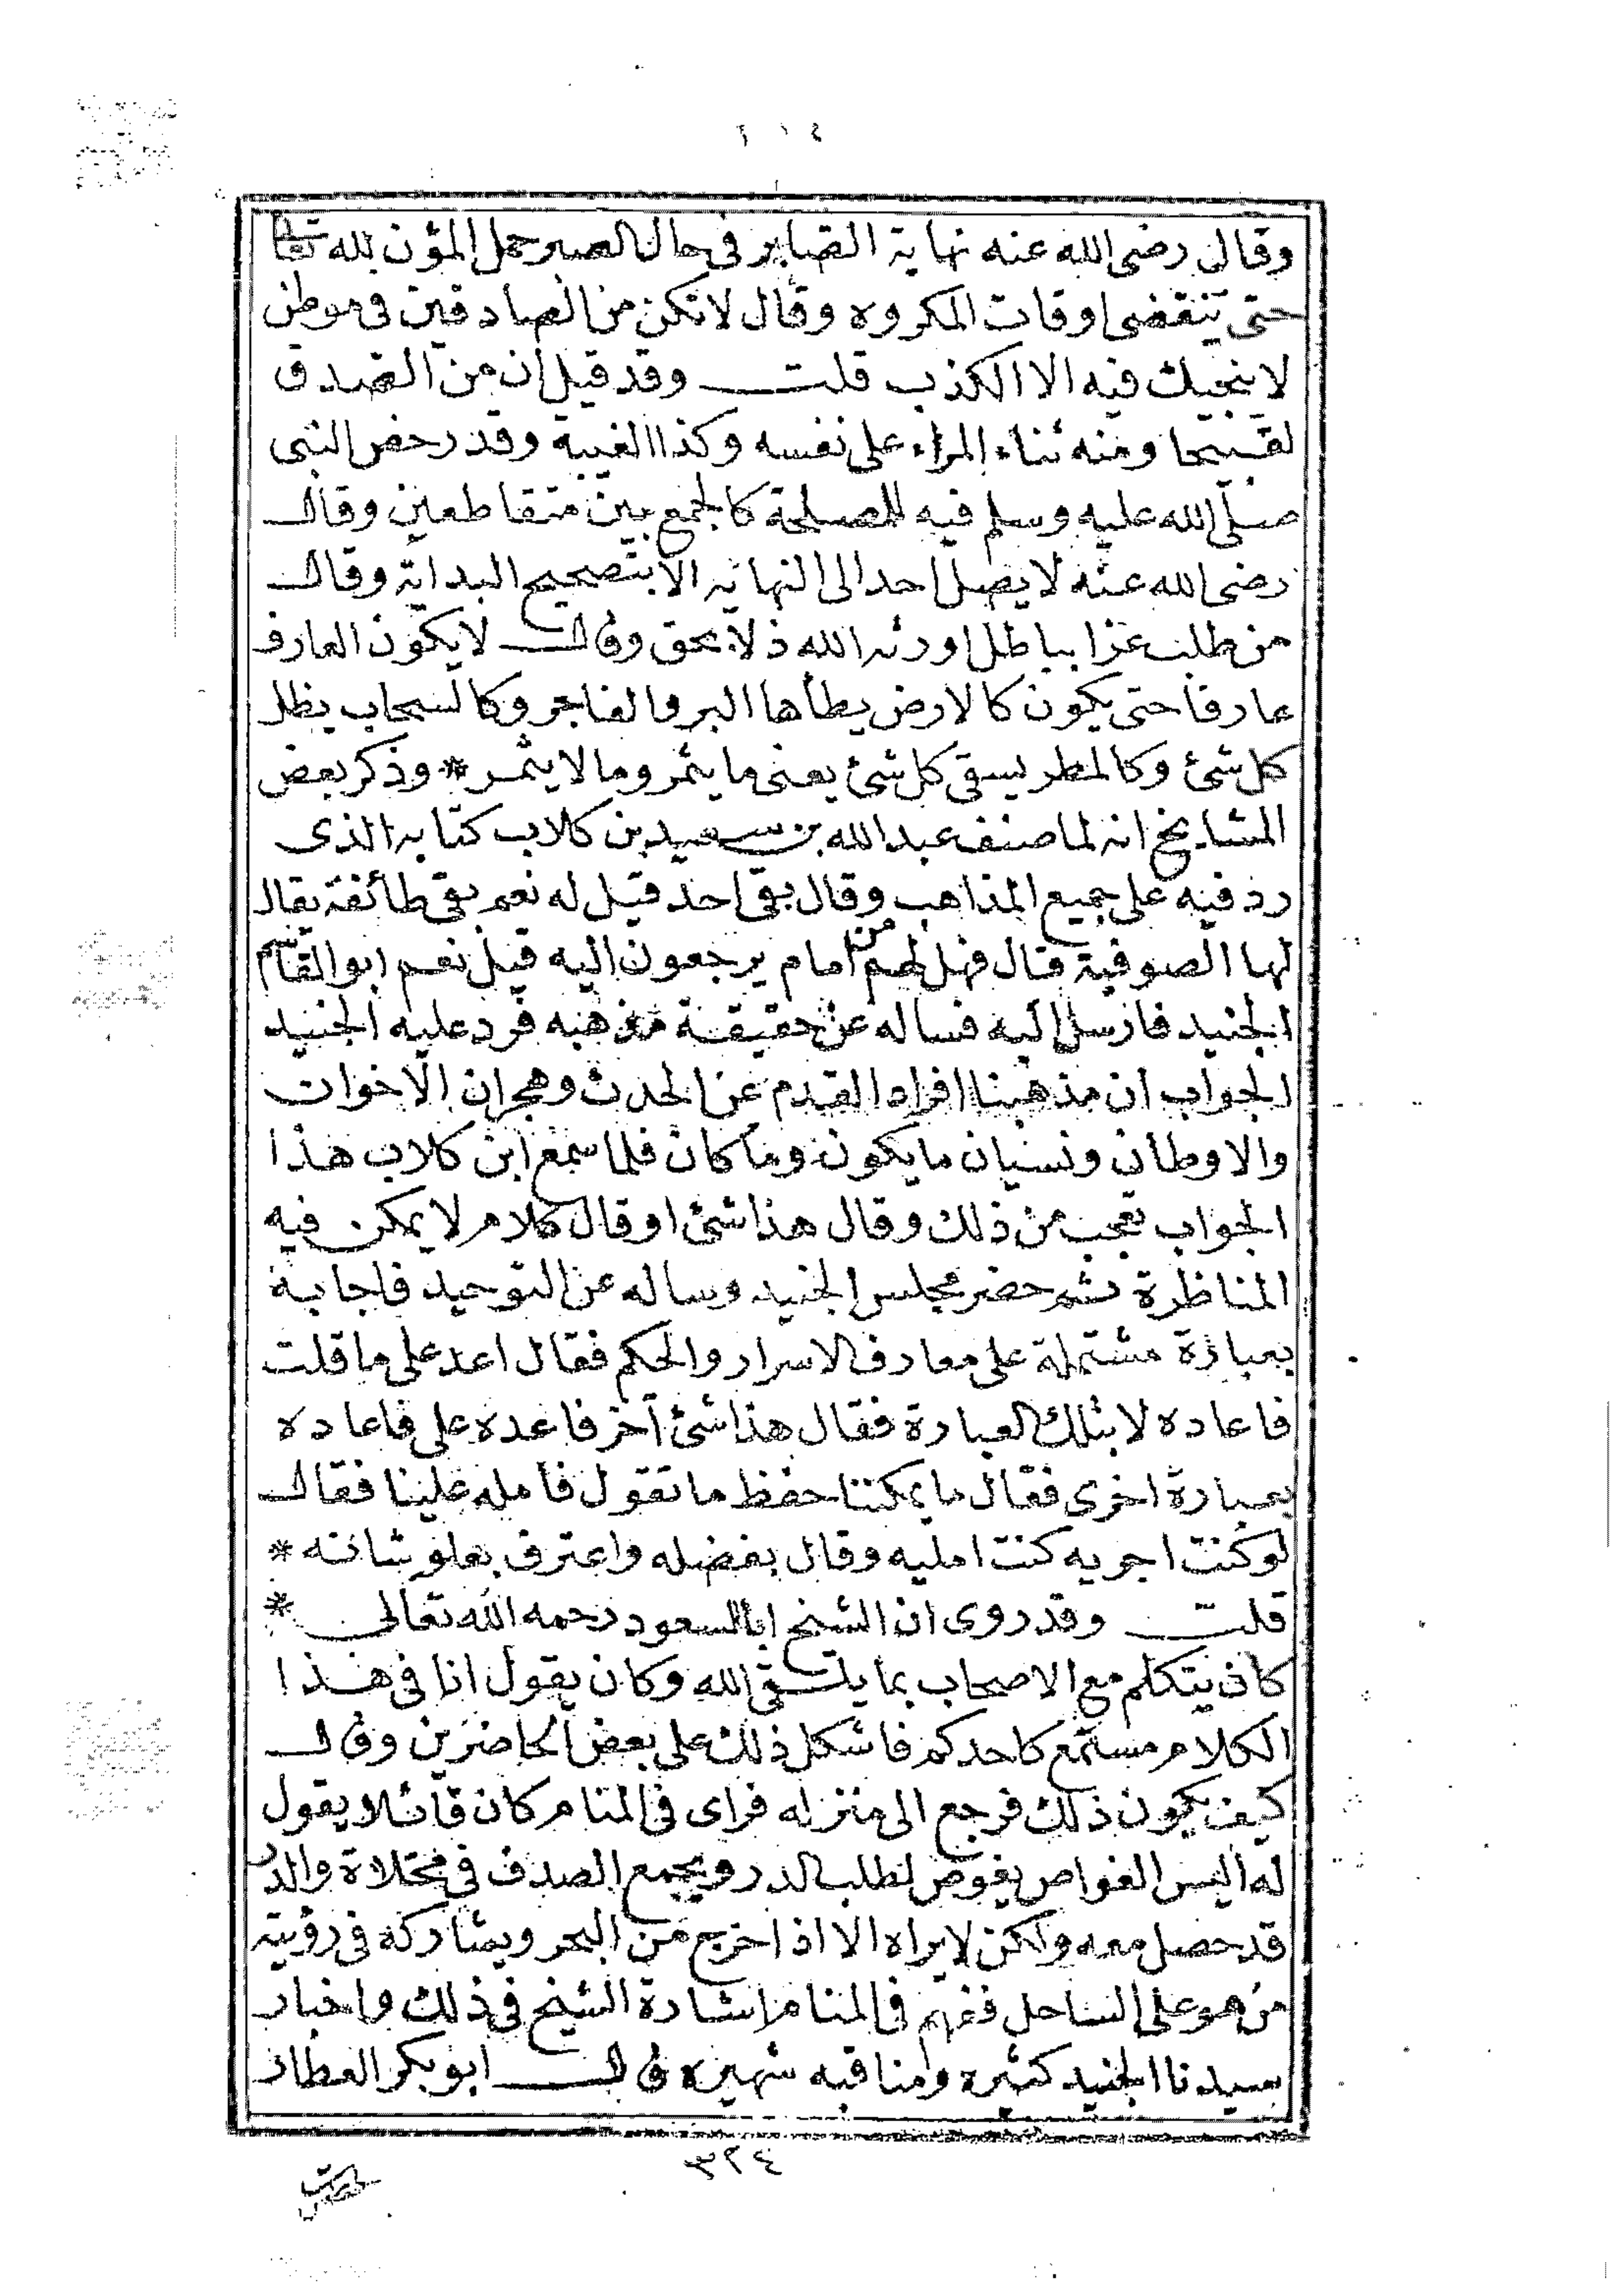 وقال رضى الله عنه نهاية الصابر فى حال الصبر حمل المؤن لله تعالى
حتى تنقضى اوقات المكروه وقال لا تكن من الصادقين فى موطن
لا ينجيك فيه الا الكذب قلت وقد قيل ان من الصدق
لقبيحا ومنه ثناء المراء على نفسه وكذا الغيبة وقد رخص النبى
صلى الله عليه وسلم فيه للمصلحة كالجمع بين متقاطعين وقال
رضى الله عنه لا يصل احد الى النهاية الا بتصحيح البداية وقال
من طلب عزا بباطل اورثه الله ذلا بحق وقال لا يكون العارف
عارفا حتى يكون كالارض يطأها البر والفاجر وكالسحاب يظل
كل شئ وكالمطر يسقى كل شئ يعنى ما يثمر وما لا يثمر * وذكر بعض
المشايخ انه لما صنف عبد الله بن سعيد بن كلاب كتابه الذى
رد فيه على جميع المذاهب وقال بقى احد قيل له نعم بقى طائفة يقال
لها الصوفية قال فهل لهم من امام يرجعون اليه قيل نعم ابو القاسم
الجنيد فارسل اليه فساله عن حقيقة مذهبه فرد عليه الجنيد
الجواب ان مذهبنا افراد القدم عن الحدث وهجران الاخوات
والاوطان ونسيان ما يكون وما كان فلما سمع ابن كلاب هذا
الجواب تعجب من ذلك وقال هذا شئ او قال كلام لا يمكن فيه
المناظرة ثم حضر مجلس الجنيد وساله عن التوحيد فاجابه
بعبارة مشتملة على معارف الاسرار والحكم فقال اعد على ما قلت
فاعاده لا بتلك العبارة فقال هذا شئ آخر فاعده على فاعاده
بعبارة اخرى فقال ما يمكننا حفظ ما تقول فأمله علينا فقال
لو كنت اجريه كنت امليه وقال بفضله واعترف بعلو شانه *
قلت وقد روى ان الشيخ ابا السعود رحمه الله تعالى *
كان يتكلم مع الاصحاب بما يلقى الله وكان يقول انا فى هذا
الكلام مستمع كاحدكم فاشكل ذلك على بعض الحاضرين وقال
كيف يكون ذلك فرجع الى منزله فراى فى المنام كان قائلا يقول
له اليس الغواص يغوص لطلب الدر ويجمع الصدف فى مخلاة والدر
قد حصل معه ولكن لا يراه الا اذا خرج من البحر ويشاركه فى رؤيته
من هو على الساحل ففهم فى المنام اشارة الشيخ فى ذلك واخبار
سيدنا الجنيد كثيره ومناقبه شهيره قال ابو بكر العطار
٣٢٤